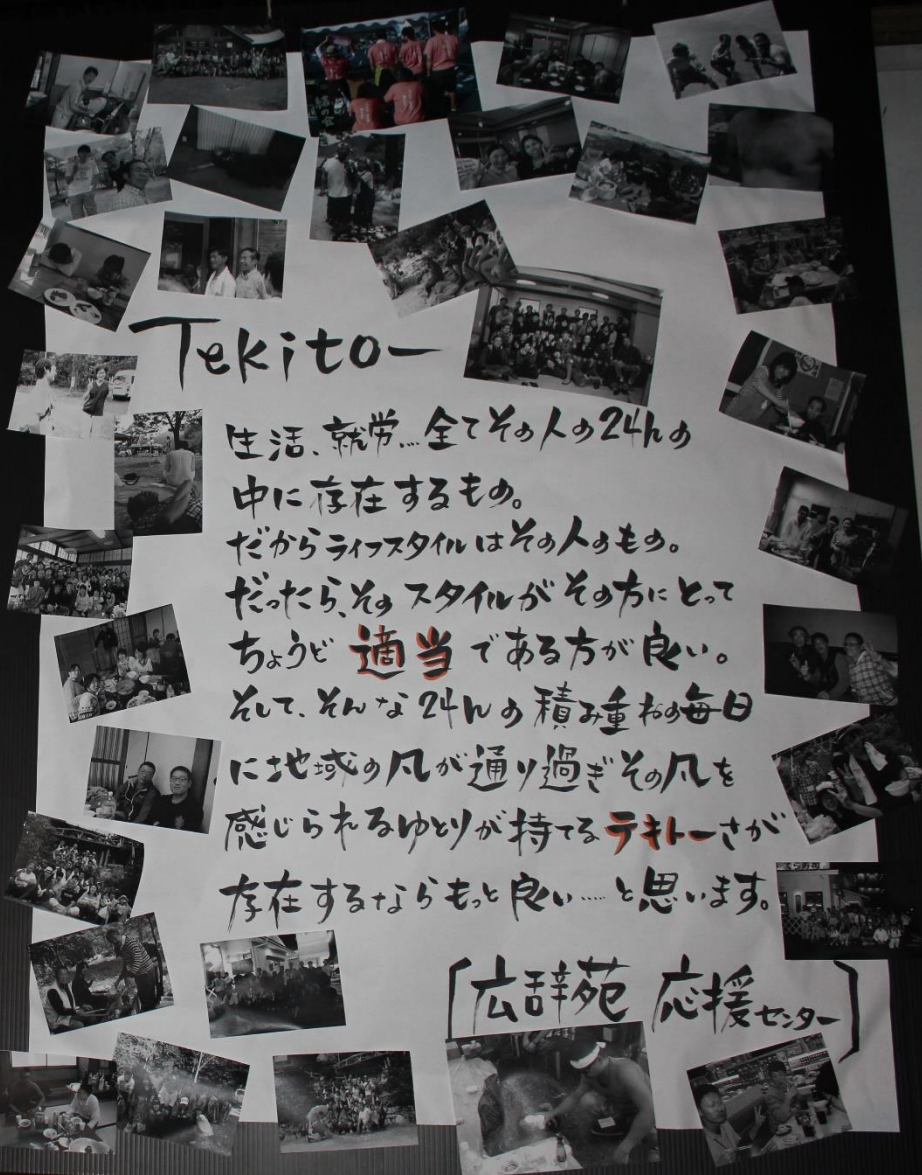 Tekitoー
生活、就労…全てその人の24hの
中に存在するもの。
だからライフスタイルはその人のもの。
だったら、そのスタイルがその方にとって
ちょうど適当である方が良い。
そして、そんな24hの積み重ねの毎日
に地域の風が通り過ぎその風を
感じられるゆとりが持てるテキトーさが
存在するならもっと良い……と思います。
[広辞苑 応援センター]